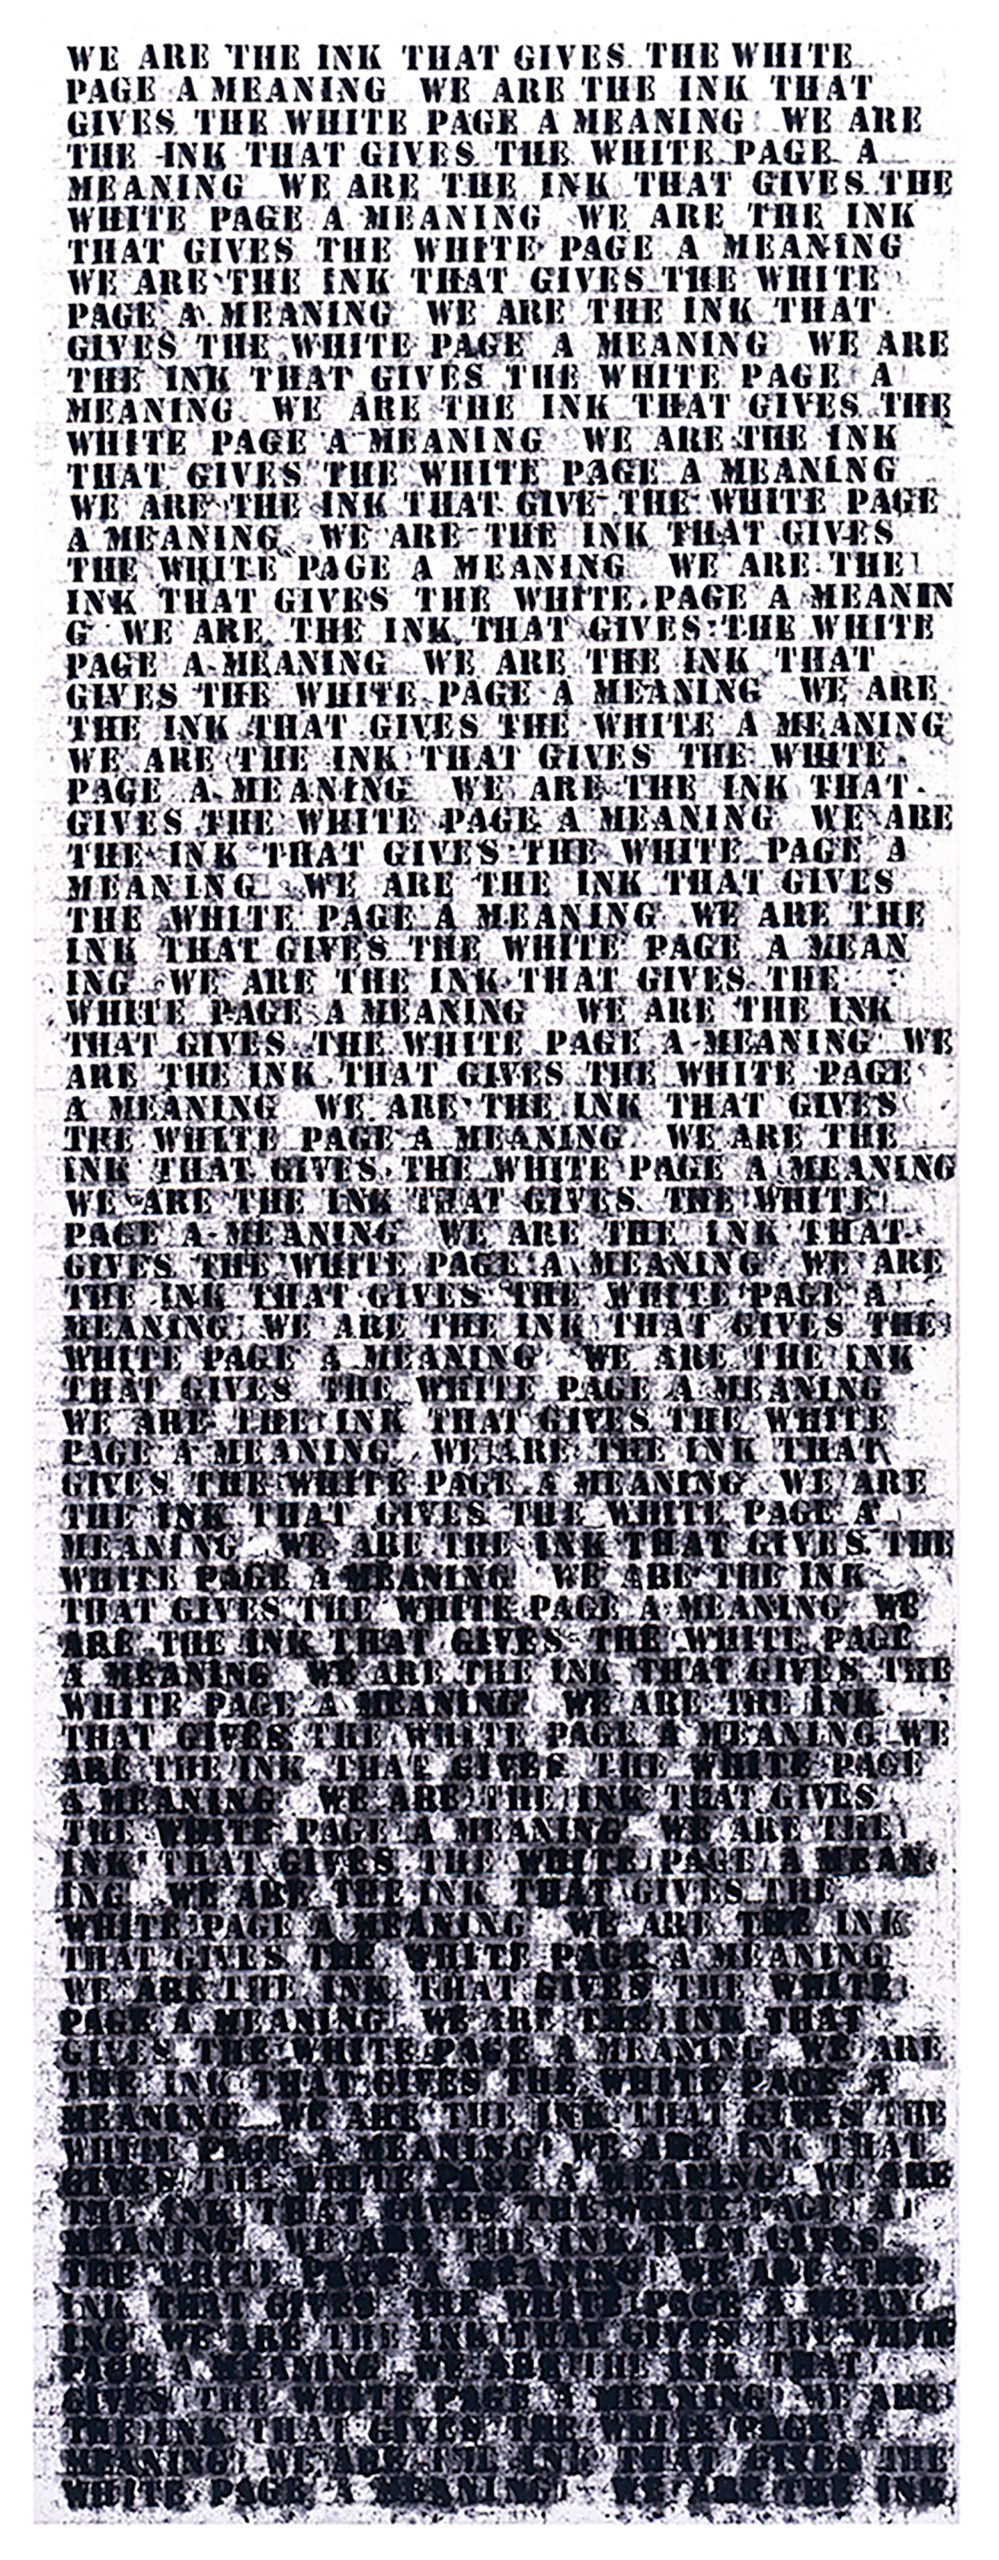 WE ARE THE INK THAT GIVES THE WHITE
PAGE A MEANING WE ARE THE INK THAT
GIVES THE WHITE PAGE A MEANING WE ARE
THE INK THAT GIVES THE WHITE PAGE A
MEANING WE ARE THE INK THAT GIVES THE
WHITE PAGE A MEANING WE ARE THE INK
THAT GIVES THE WHITE PAGE A MEANING
WE ARE THE INK THAT GIVES THE WHITE
PAGE A MEANING WE ARE THE INK THAT
GIVES THE WHITE PAGE A MEANING WE ARE
THE INK THAT GIVES THE WHITE PAGE A
MEANING WE ARE THE INK THAT GIVES THE
WHITE PAGE A MEANING WE ARE THE INK
THAT GIVES THE WHITE PAGE A MEANING
WE ARE THE INK THAT GIVE THE WHITE PAGE
A MEANING WE ARE THE INK THAT GIVES
THE WHITE PAGE A MEANING WE ARE THE
INK THAT GIVES THE WHITE PAGE A MEANIN
G WE ARE THE INK THAT GIVES THE WHITE
PAGE A MEANING WE ARE THE INK THAT
GIVES THE WHITE PAGE A MEANING WE ARE
THE INK THAT GIVES THE WHITE A MEANING
WE ARE THE INK THAT GIVES THE WHITE
PAGE A MEANING WE ARE THE INK THAT
GIVES THE WHITE PAGE A MEANING WE ARE
THE INK THAT GIVES THE WHITE PAGE A
MEANING WE ARE THE INK THAT GIVES
THE WHITE PAGE A MEANING WE ARE THE
INK THAT GIVES THE WHITE PAGE A MEAN
ING WE ARE THE INK THAT GIVES THE
WHITE PAGE A MEANING WE ARE THE INK
THAT GIVES THE WHITE PAGE A MEANING WE
ARE THE INK THAT GIVES THE WHITE PAGE
A MEANING WE ARE THE INK THAT GIVES
THE WHITE PAGE A MEANING WE ARE THE
INK THAT GIVES THE WHITE PAGE A MEANING
WE ARE THE INK THAT GIVES THE WHITE
PAGE A MEANING WE ARE THE INK THAT
GIVES THE WHITE PAGE A MEANING WE ARE
THE INK THAT GIVES THE WHITE PAGE A
MEANING WE ARE THE INK THAT GIVES THE
WHITE PAGE A MEANING WE ARE THE INK
THAT GIVES THE WHITE PAGE A MEANING
WE ARE THE INK THAT GIVES THE WHITE
PAGE A MEANING WE ARE THE INK THAT
GIVES THE WHITE PAGE A MEANING WE ARE
THE INK THAT GIVES THE WHITE PAGE A
MEANING WE ARE THE INK THAT GIVES THE
WHITE PAGE A MEANING WE ARE THE INK
THAT GIVES THE WHITE PAGE A MEANING WE
ARE THE INK THAT GIVES THE WHITE PAGE
A MEANING WE ARE THE INK THAT GIVES THE
WHITE PAGE A MEANING WE ARE THE INK
THAT GIVES THE WHITE PAGE A MEANING WE
ARE THE INK THAT GIVES THE WHITE PAGE
A MEANING WE ARE THE INK THAT GIVES
THE WHITE PAGE A MEANING WE ARE THE
INK THAT GIVES THE WHITE PAGE A MEAN
ING WE ARE THE INK THAT GIVES THE
WHITE PAGE A MEANING WE ARE THE INK
THAT GIVES THE WHITE PAGE A MEANING
WE ARE THE INK THAT GIVES THE WHITE
PAGE A MEANING WE ARE THE INK THAT
GIVES THE WHITE PAGE A MEANING WE ARE
THE INK THAT GIVES THE WHITE PAGE A
MEANING WE ARE THE INK THAT GIVES THE
WHITE PAGE A MEANING WE ARE INK THAT
GIVES THE WHITE PAGE A MEANING WE ARE
THE INK THAT GIVES THE WHITE PAGE A
MEANING WE ARE THE INK THAT GIVES
THE WHITE PAGE A MEANING WE ARE THE
INK THAT GIVES THE WHITE PAGE A MEAN
ING WE ARE THE INK THAT GIVES THE WHITE
PAGE A MEANING WE ARE THE INK THAT
GIVES THE WHITE PAGE A MEANING WE ARE
THE INK THAT GIVES THE WHITE PAGE A
MEANING WE ARE THE INK THAT GIVES THE
WHITE PAGE A MEANING WE ARE THE INK